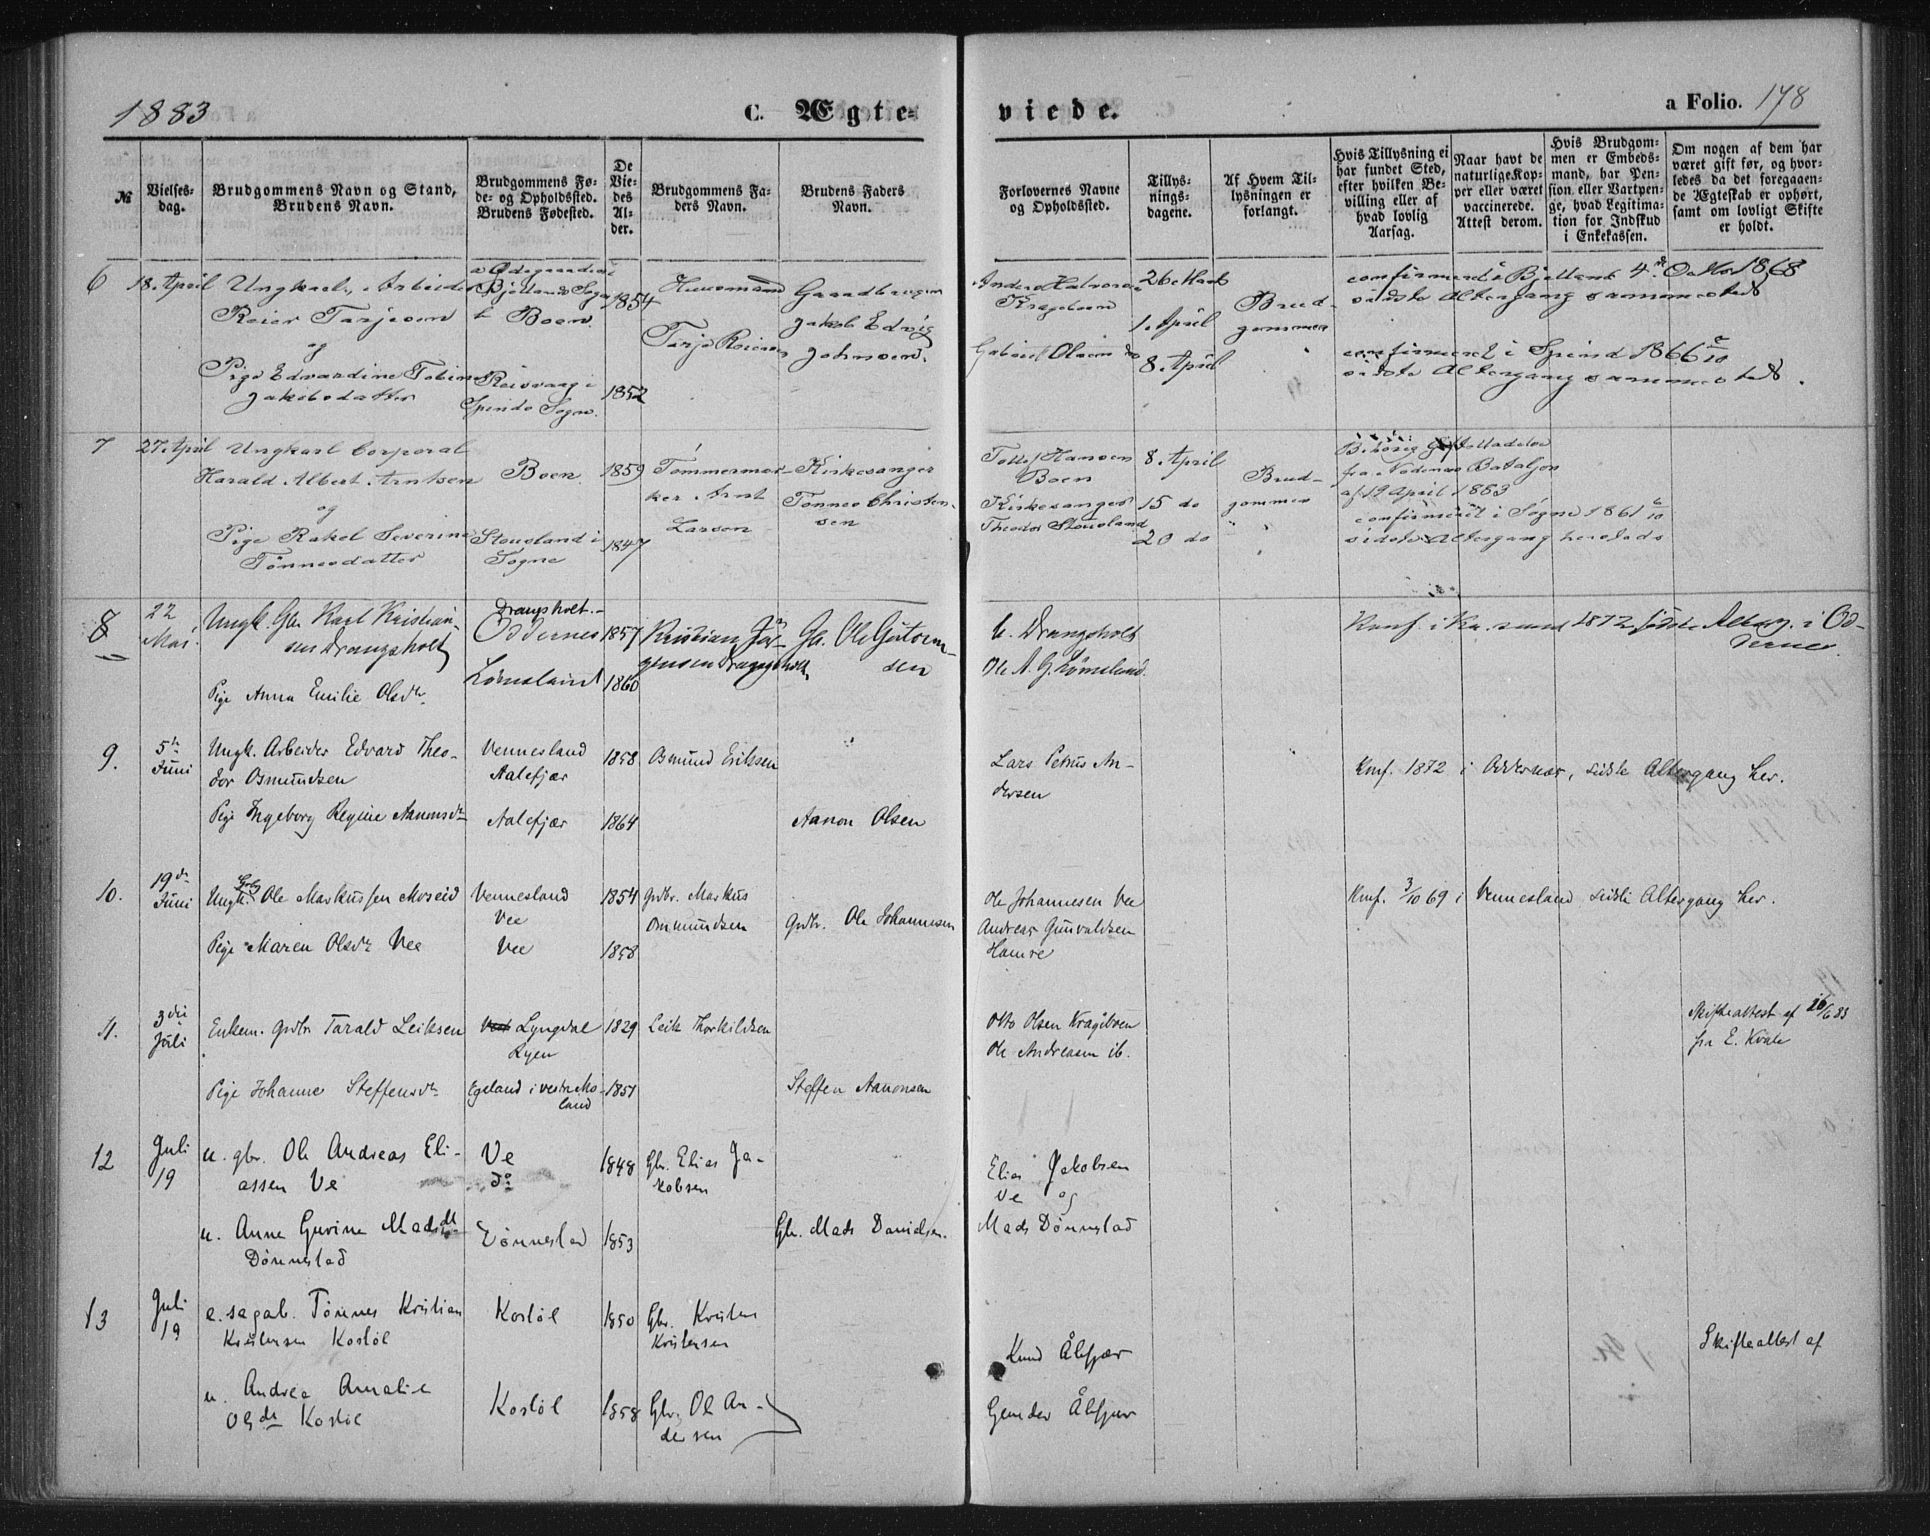 1883
C. Ægte-
viede.
a Folio. 178
№
Vielses-
dag.
Brudgommens Navn og Stand,
Brudens Navn.
Brudgommens Fø-
de- og Opholdssted.
Brudens Fødested.
De
Vie-
des
Al-
der.
Brudgommens Fa-
ders Navn.
Brudens Faders
Navn.
Forlovernes Navne
og Opholdssted.
Tillys-
nings-
dagene.
Af Hvem Til-
lysningen er
forlangt.
Hvis Tillysning ei
har fundet Sted,
efter hvilken Be-
villing eller af
hvad lovlig
Aarsag.
Naar havt de
naturlige Kop-
per eller været
vaccinerede.
Attest derom.
Hvis Brudgom-
men er Embeds-
mand, har Pen-
sion eller Vartpen-
ge, hvad Legitima-
tion for Indskud
i Enkekassen.
Om nogen af dem har
været gift før, og hvor-
ledes da det foregaaen-
de Ægteskab er ophørt,
samt om lovligt Skifte
er holdt.
6
18. April
Ungkarl, Arbeider
Reier Tarjesen
og
Pige Edvardine Tobine
Jakobsdatter
Bjellands Sogn
Boen
1854
Spinds Sogn.
1852
Huusmand
Tarje Reiersen
Gaardbruger
Jakob Edvig
Johnsen.
Anders Halvorsen
Krageboen
Gabriel Olsen do
26 Marts
1. April
8. April
Brud-
gommen
confirmeret i Bjelland 4de Octbr 1868
sidste Altergang sammesteds
confirmeret i Spind 1866
sidste Altergang sammesteds.
7
27. April
Ungkarl Corporal
Harald Albert Arntsen
og
Pige Rakel Severine
Tønnesdatter
Boen
1859
Stousland i
Sogne
1847
Tømmermæn-
ker Arnt
Larsen
Kirkesanger
Tønnes Christen-
sen
Tollef Hansen
Boen
Kirkesanger
Theodor Stousland
8. April
15 do
20 do
Brud-
gommen
fra Nedenes Bataljon
af 19 April 1883
confirmeret i Sogne 1861 6/10
sidste Altergang heresteds
8
22
Mai.
Ungk. Gbr. Karl Kristian-
sen Drangsholt
Pige Anna Emilie Olsdtr.
Drangsholt.-
Oddernes
Lømsland
1857
1860
Kristian Jør-
gensen Drangsholt,
Gb. Ole Gutorm-
sen
K. Drangsholt
Ole A. G. Lømsland.
Konf. i Kr.sand 1872 sidste Alterg. i Od-
dernes.
9.
5te
Juni
Ungk. Arbeider Edvard Theo-
dor Osmundsen
Pige Ingeborg Regine Aanonsdtr
Vennesland
Aalefjær
Aalefjær
1858
1864
Osmund Eriksen
Aanon Olsen
Lars Petrus An-
dersen
Konf. 1872 i Oddernæs, sidste Altergang her.
10.
19de
Juni
Ungk. Gdbr. Ole Markussen Moseid
Pige Maren Olsdtr Vee
Vennesland
Vee
Vee
1854
1858
Grdbr. Markus
Osmundsen
Grdbr. Ole Johannesen
Ole Johannesen Vee
Andreas Gunvaldsen
Hamre
Konf. 3/10 69 i Vennesland sidste Altergang her.
11.
3die
Juli
Enkem. Grdbr Tarald Leiksen
Pige Johanne Steffensdtr
Lyngdal
Ryen
Egeland i vestre Mo-
land
1829
1851
Leik Thorkildsen
Steffen Aanonsen
Otto Olsen Krageboen
Ole Andreasen ib.
Skifteattest af 26/6 83
fra E. Kvale
12
Juli
19
u. gbr. Ole Andreas Eli-
assen Ve
u. Anne Gurine Madsdtr
Dønnestad
Ve
do
Dønnestad
1848
1853
Gbr. Elias Ja-
kobsen
Gbr. Mads Danielsen.
Elias Jakobsen
Ve og
Mads Dønnestad
13
Juli
19
e. sagab. Tønnes Kristian
Kristensen Kostøl
u. Andrea Amalie
Olsdtr Kostøl
Kostøl
Kostøl
1850
1858
Gbr. Kristen
Kristensen
Gbr. Ole An-
dersen
Knud Ålefjær
Gunder Ålefjær
Skifteattest af